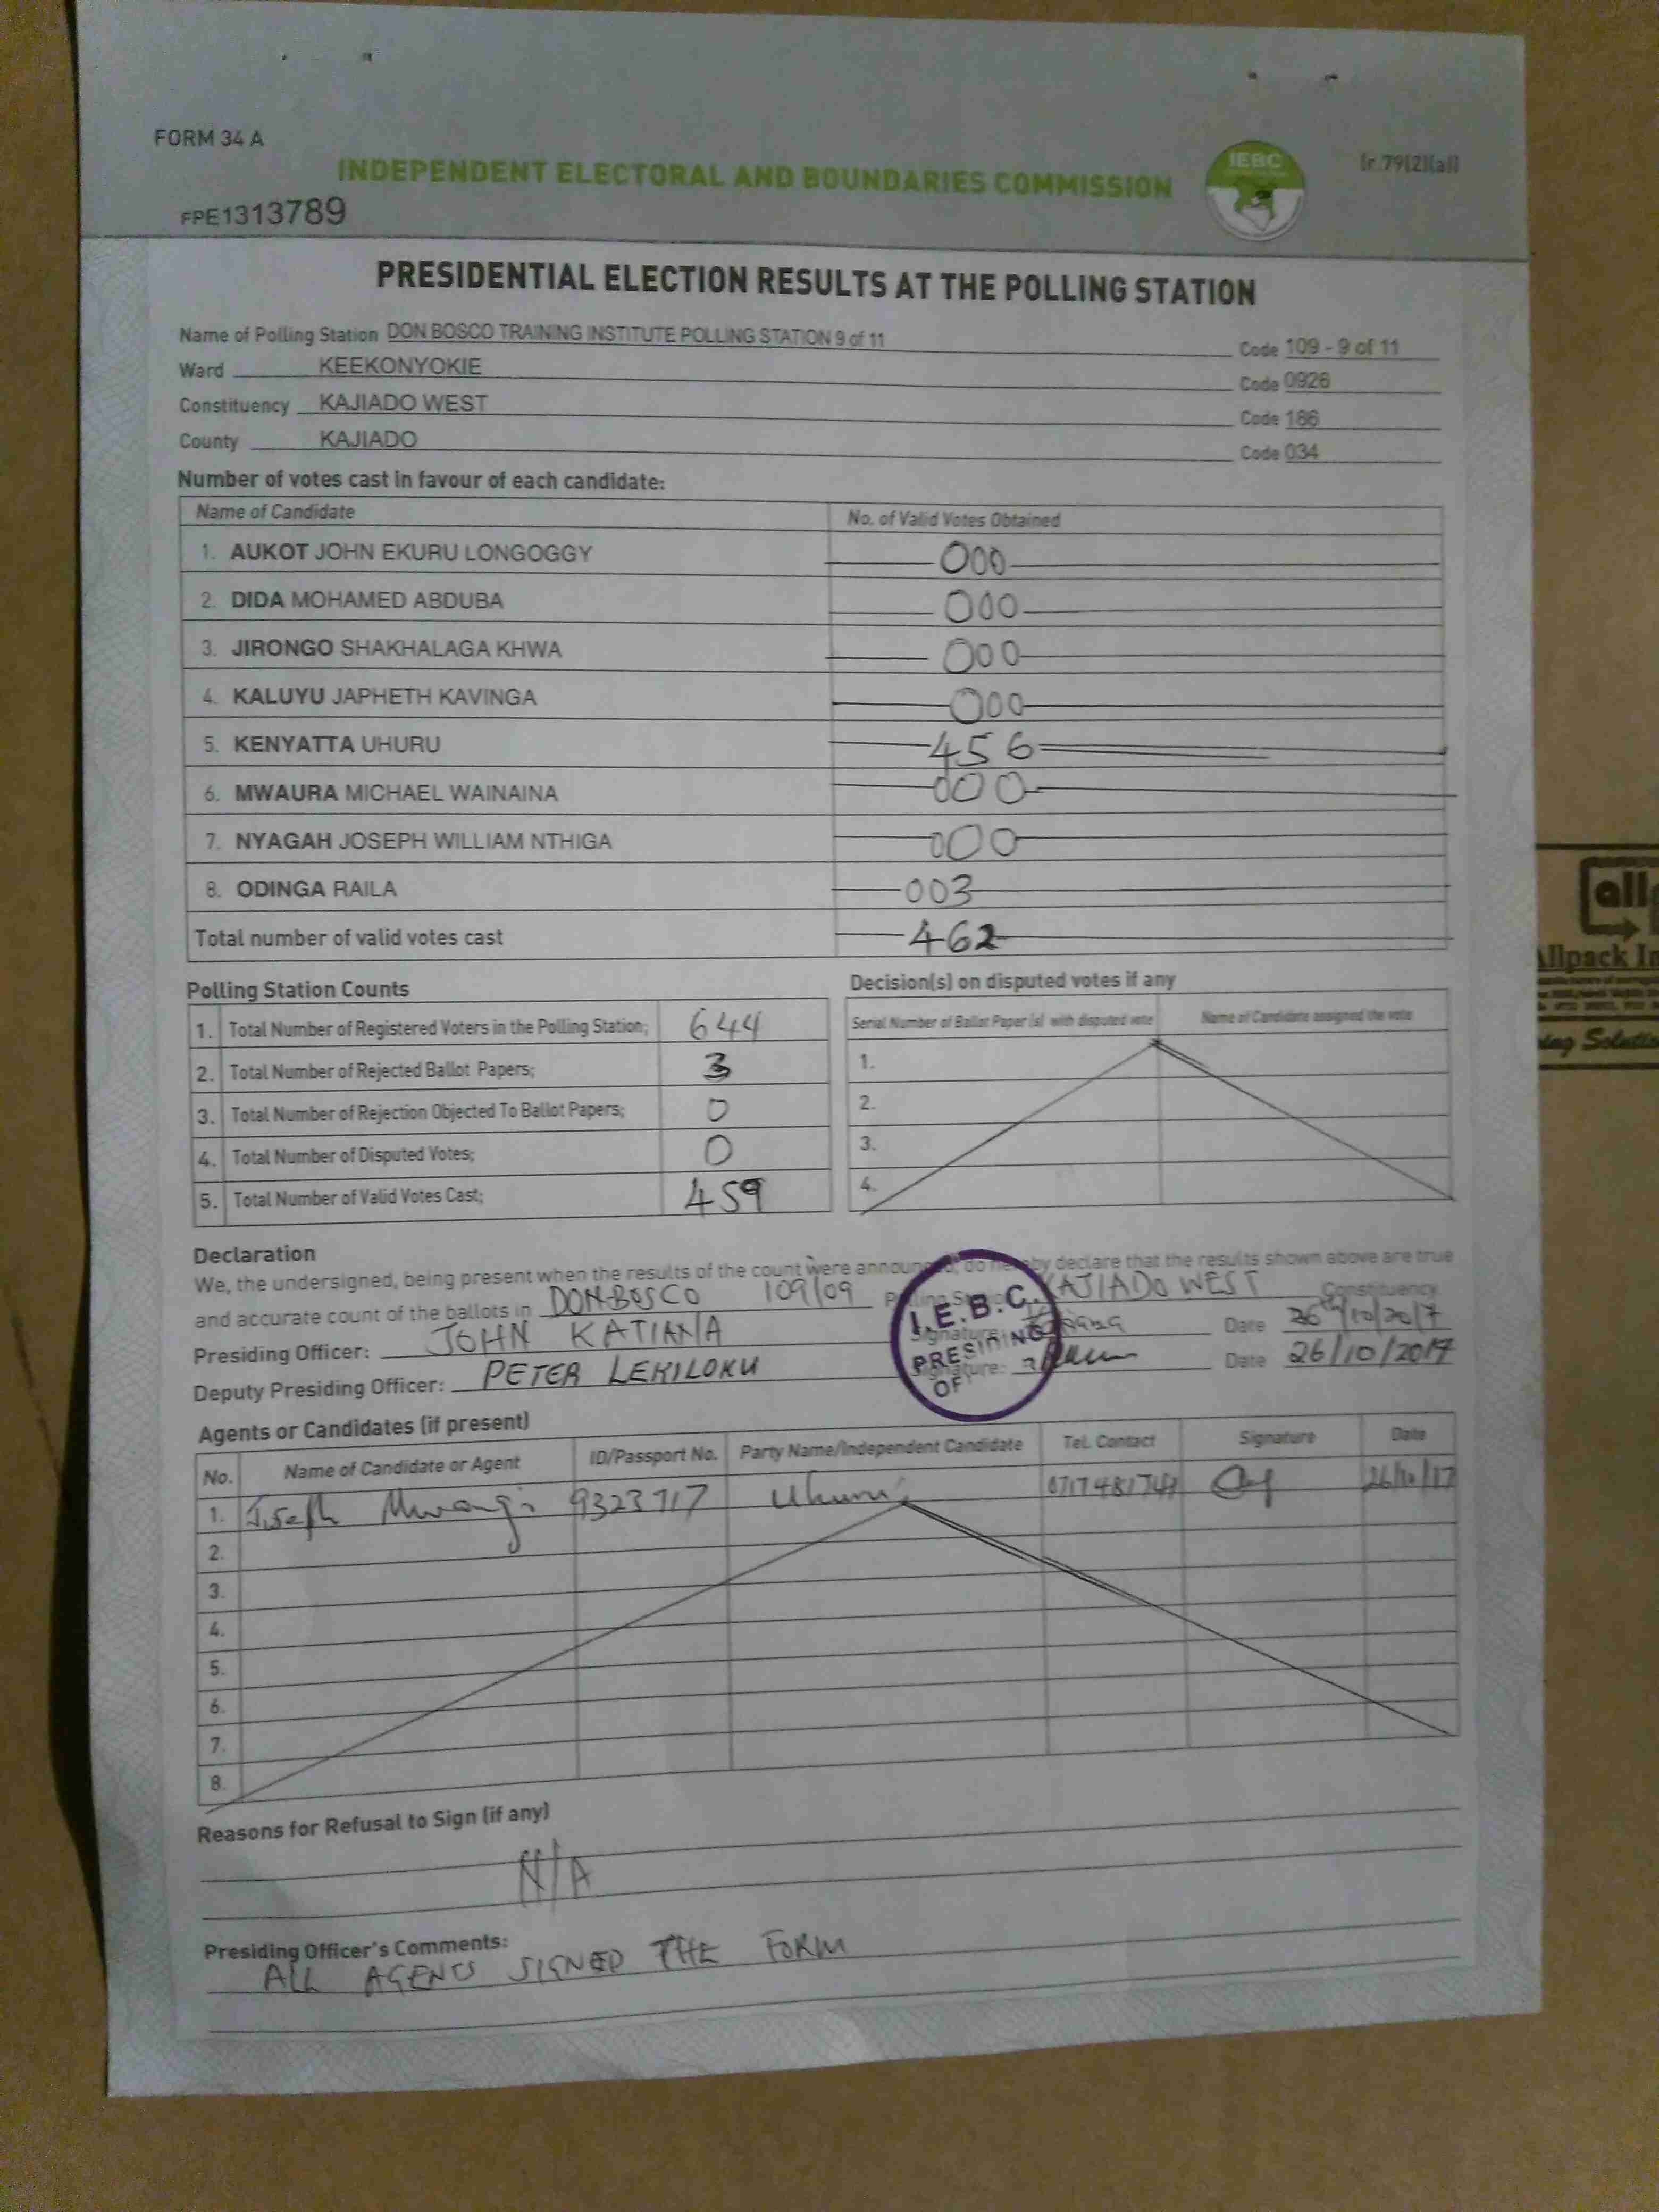 FORM 34 A
INDEPENDENT ELECTORAL AND BOUNDARIES COMMISSION
IEBC
(r.79(2)(a))
FPE1313789
PRESIDENTIAL ELECTION RESULTS AT THE POLLING STATION
Name of Polling Station DON BOSCO TRAINING INSTITUTE POLLING STATION 9 of 11 Code 109 - 9 of 11
Ward KEEKONYOKIE Code 0926
Constituency KAJIADO WEST Code 186
County KAJIADO Code 034
Number of votes cast in favour of each candidate:
Name of Candidate No. of Valid Votes Obtained
1. AUKOT JOHN EKURU LONGOGGY 000
2. DIDA MOHAMED ABDUBA 000
3. JIRONGO SHAKHALAGA KHWA 000
4. KALUYU JAPHETH KAVINGA 000
5. KENYATTA UHURU 456
6. MWAURA MICHAEL WAINAINA 000
7. NYAGAH JOSEPH WILLIAM NTHIGA 000
8. ODINGA RAILA 003
Total number of valid votes cast 462
Polling Station Counts
1. Total Number of Registered Voters in the Polling Station; 644
2. Total Number of Rejected Ballot Papers; 3
3. Total Number of Rejection Objected To Ballot Papers; 0
4. Total Number of Disputed Votes; 0
5. Total Number of Valid Votes Cast; 459
Decision(s) on disputed votes if any
Serial Number of Ballot Paper (s) with disputed vote Name of Candidate assigned the vote
1.
2.
3.
4.
Declaration
We, the undersigned, being present when the results of the count were announced, do hereby declare that the results shown above are true
and accurate count of the ballots in DON-BOSCO 109/09 Polling KAJIADO WEST Constituency
Presiding Officer: JOHN KATIANA Signature: Date 26th/10/2017
Deputy Presiding Officer: PETER LEKILOKU Signature: Date 26/10/2017
I.E.B.C.
PRESIDING
OF
Agents or Candidates (if present)
No. Name of Candidate or Agent ID/Passport No. Party Name/Independent Candidate Tel. Contact Signature Date
1. Joseph Mwangi 9323717 Uhuru 26/10/17
2.
3.
4.
5.
6.
7.
8.
Reasons for Refusal to Sign (if any)
N/A
Presiding Officer's Comments:
ALL AGENTS SIGNED THE FORM
all
Allpack In